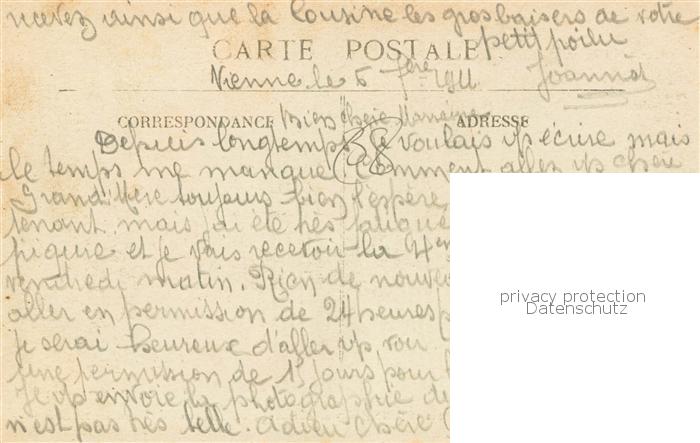 recevez ainsi que la Cousine les gros baisers de votre
petit poilu
CARTE POSTALE
Vienne le 5
Joannà
CORRESPONDANCE
ADRESSE
Bien chère Marraine
Depuis longtemps je voulais vs écrire mais
le temps me manque. Comment allez vs chère
(38)
Grand'Mère toujours bien j'espère
tenant, mais j'ai été très fatigué
piqure et je vais recevoir la 4em
vendredi matin. Rien de nouveau
aller en permission de 24 heures
je serai heureux d'aller vs voir
une permission de 15 jours pour
Je vs envoie la photographie
n'est pas très belle. adieu chère
privacy protection
Datenschutz